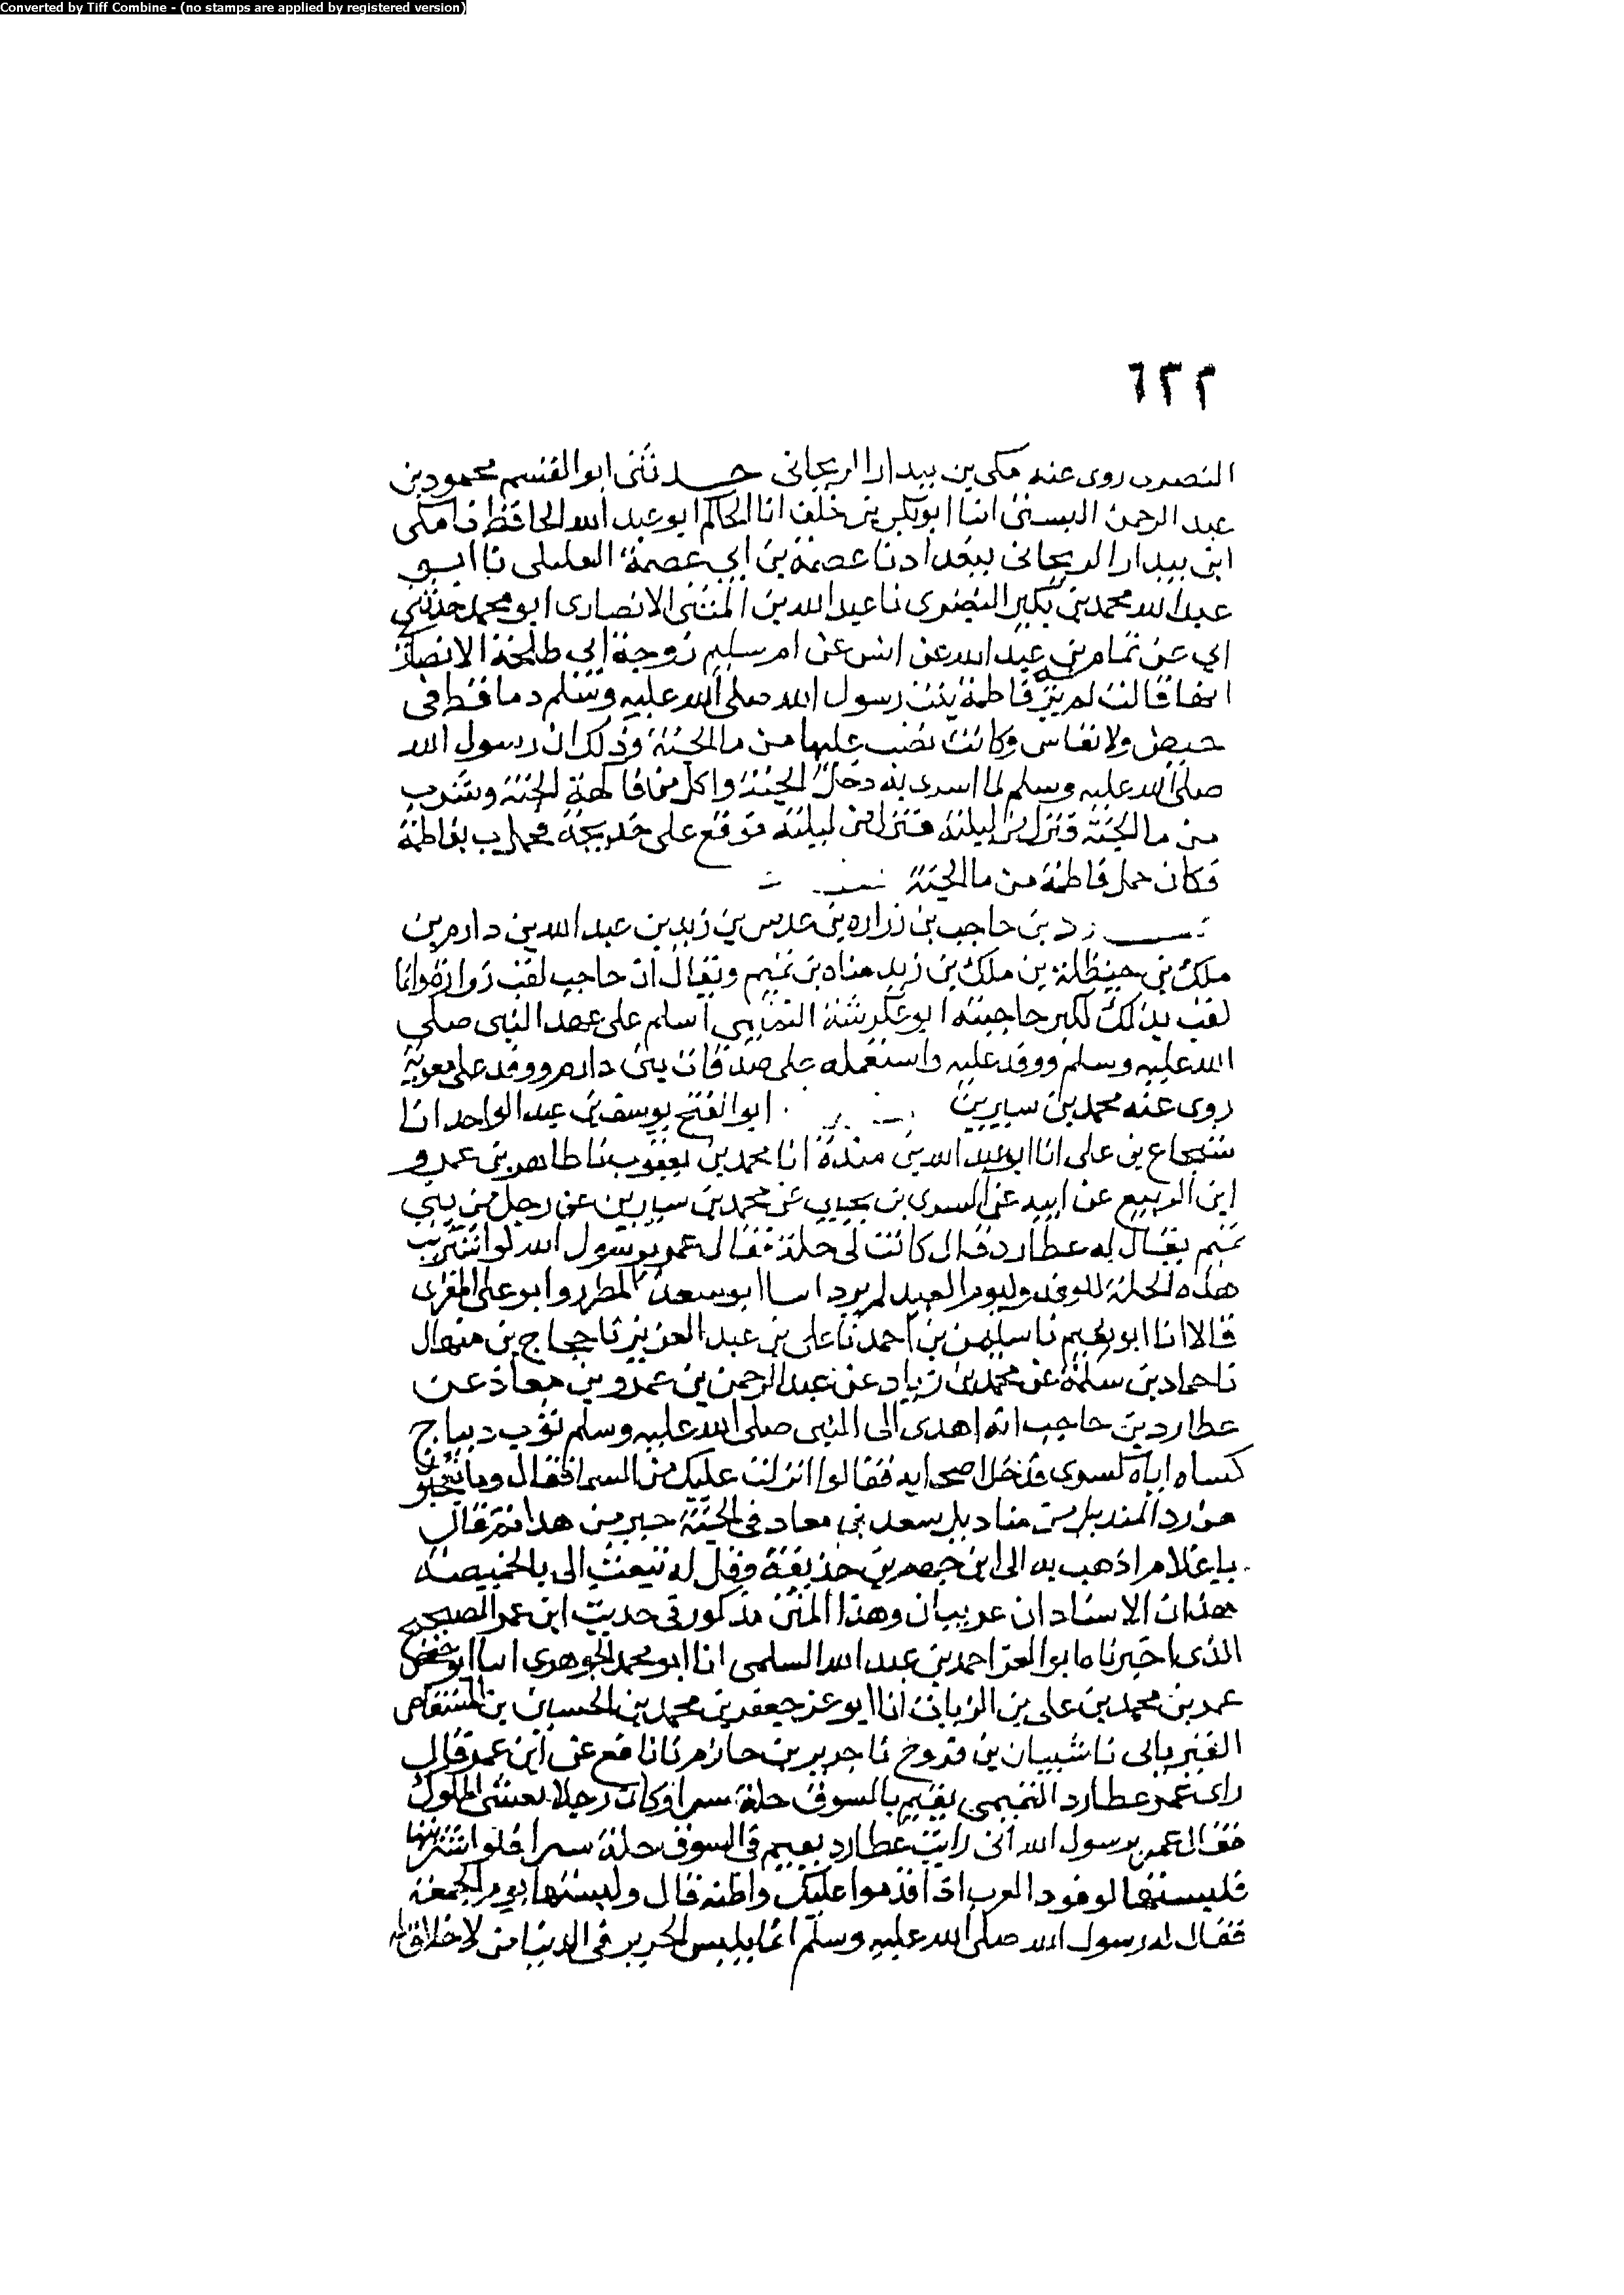 Converted by Tiff Combine - (no stamps are applied by registered version)
٦٢٢
روى عنه مكى بن بيدار الريحانى حدثنى ابو القسم محمود بن
عبد الرحمن البستى انبا ابو بكر بن خلف انا الحاكم ابو عبد الله الحافظ نا مكى
ابن بيدار الريحانى ببغداد نا عصمة بن ابي عصمة نا ابو
عبد الله محمد بن بكير نا عبد الله بن المثنى الانصارى ابو محمد حدثني
ابي عن تمام بن عبد الله عن انس عن ام سليم زوجة ابي طلحة الانصارى
انها قالت لم تر فاطمة بنت رسول الله صلى الله عليه وسلم دما قط فى
حيض ولا نفاس وكانت تصب عليها من ما الجنة وذلك ان رسول الله
صلى الله عليه وسلم لما اسرى به دخل الجنة واكل من فاكهة الجنة وشرب
من ما الجنة فنزل من ليلته فوقع على خديجة فحملت بفاطمة
فكان حمل فاطمة من ما الجنة
د بن حاجب بن زراره بن عدس بن زيد بن عبد الله بن دارم بن
ملك بن حنظلة بن ملك بن زيد مناه بن تميم ويقال ان حاجب لقب وانما
لقب بذلك لكبر حاجبته ابو عكرشة التميمي اسلم على عهد النبى صلى
الله عليه وسلم ووفد عليه واستعمله على صدقات بنى دارم ووفد على معوية
روى عنه محمد بن سيرين ابو الفتح يوسف بن عبد الواحد انا
شجاع بن على انا ابو عبد الله بن مندة انا محمد بن يعقوب نا طاهر بن عمرو
ابن الربيع عن ابيه عن السرى بن يحيى عن محمد بن سيرين عن رجل من بني
تميم يقال له عطارد قال كانت لى حلة فقال عمر يرسول الله لو اشتريت
هذه الحلة للوفد وليوم العيد ابو سعد المطرز وابو على المقرى
قالا انا ابو نعيم نا سليمن بن احمد نا على بن عبد العزيز نا حجاج بن منهال
نا حماد بن سلمة عن محمد بن زياد عن عبد الرحمن بن عمرو بن معاذ عن
عطارد بن حاجب انه اهدى الى النبى صلى الله عليه وسلم ثوب ديباج
كساه اياه كسرى فدخل اصحابه فقالوا انزلت عليك من السما فقال وما تعجبو
من ذا المنديل من مناديل سعد بن معاد في الجنة خير من هذا ثم قال
يا غلام اذهب به الى ابن جهم بن حذيفة وقل له تبعث الى بالخميصة
هذان الاسنادان غريبان وهذا المتن مذكور فى حديث ابن عمر الصحيح
الذى اخبرناه ابو العز احمد بن عبد الله السلمى انا ابو محمد الجوهرى انبا ابو حفص
عمر بن محمد بن على بن الزيات انا جعفر بن محمد بن الحسين بن المستفاض
الفريابى نا شيبان بن فروخ نا جرير بن حازم نا نافع عن ابن عمر قال
راى عمر عطارد التميمى يقيم بالسوق حلة سيرا وكان رجلا يغشى الملوك
فقال عمر يرسول الله انى رايت عطارد يقيم فى السوق حلة سيرا فلو اشتريتها
فلبستها لوفود العرب اذا قدموا عليك واظنه قال ولبستها يوم الجمعة
فقال له رسول الله صلى الله عليه وسلم انما يلبس الحرير فى الدنيا من لا خلاق له